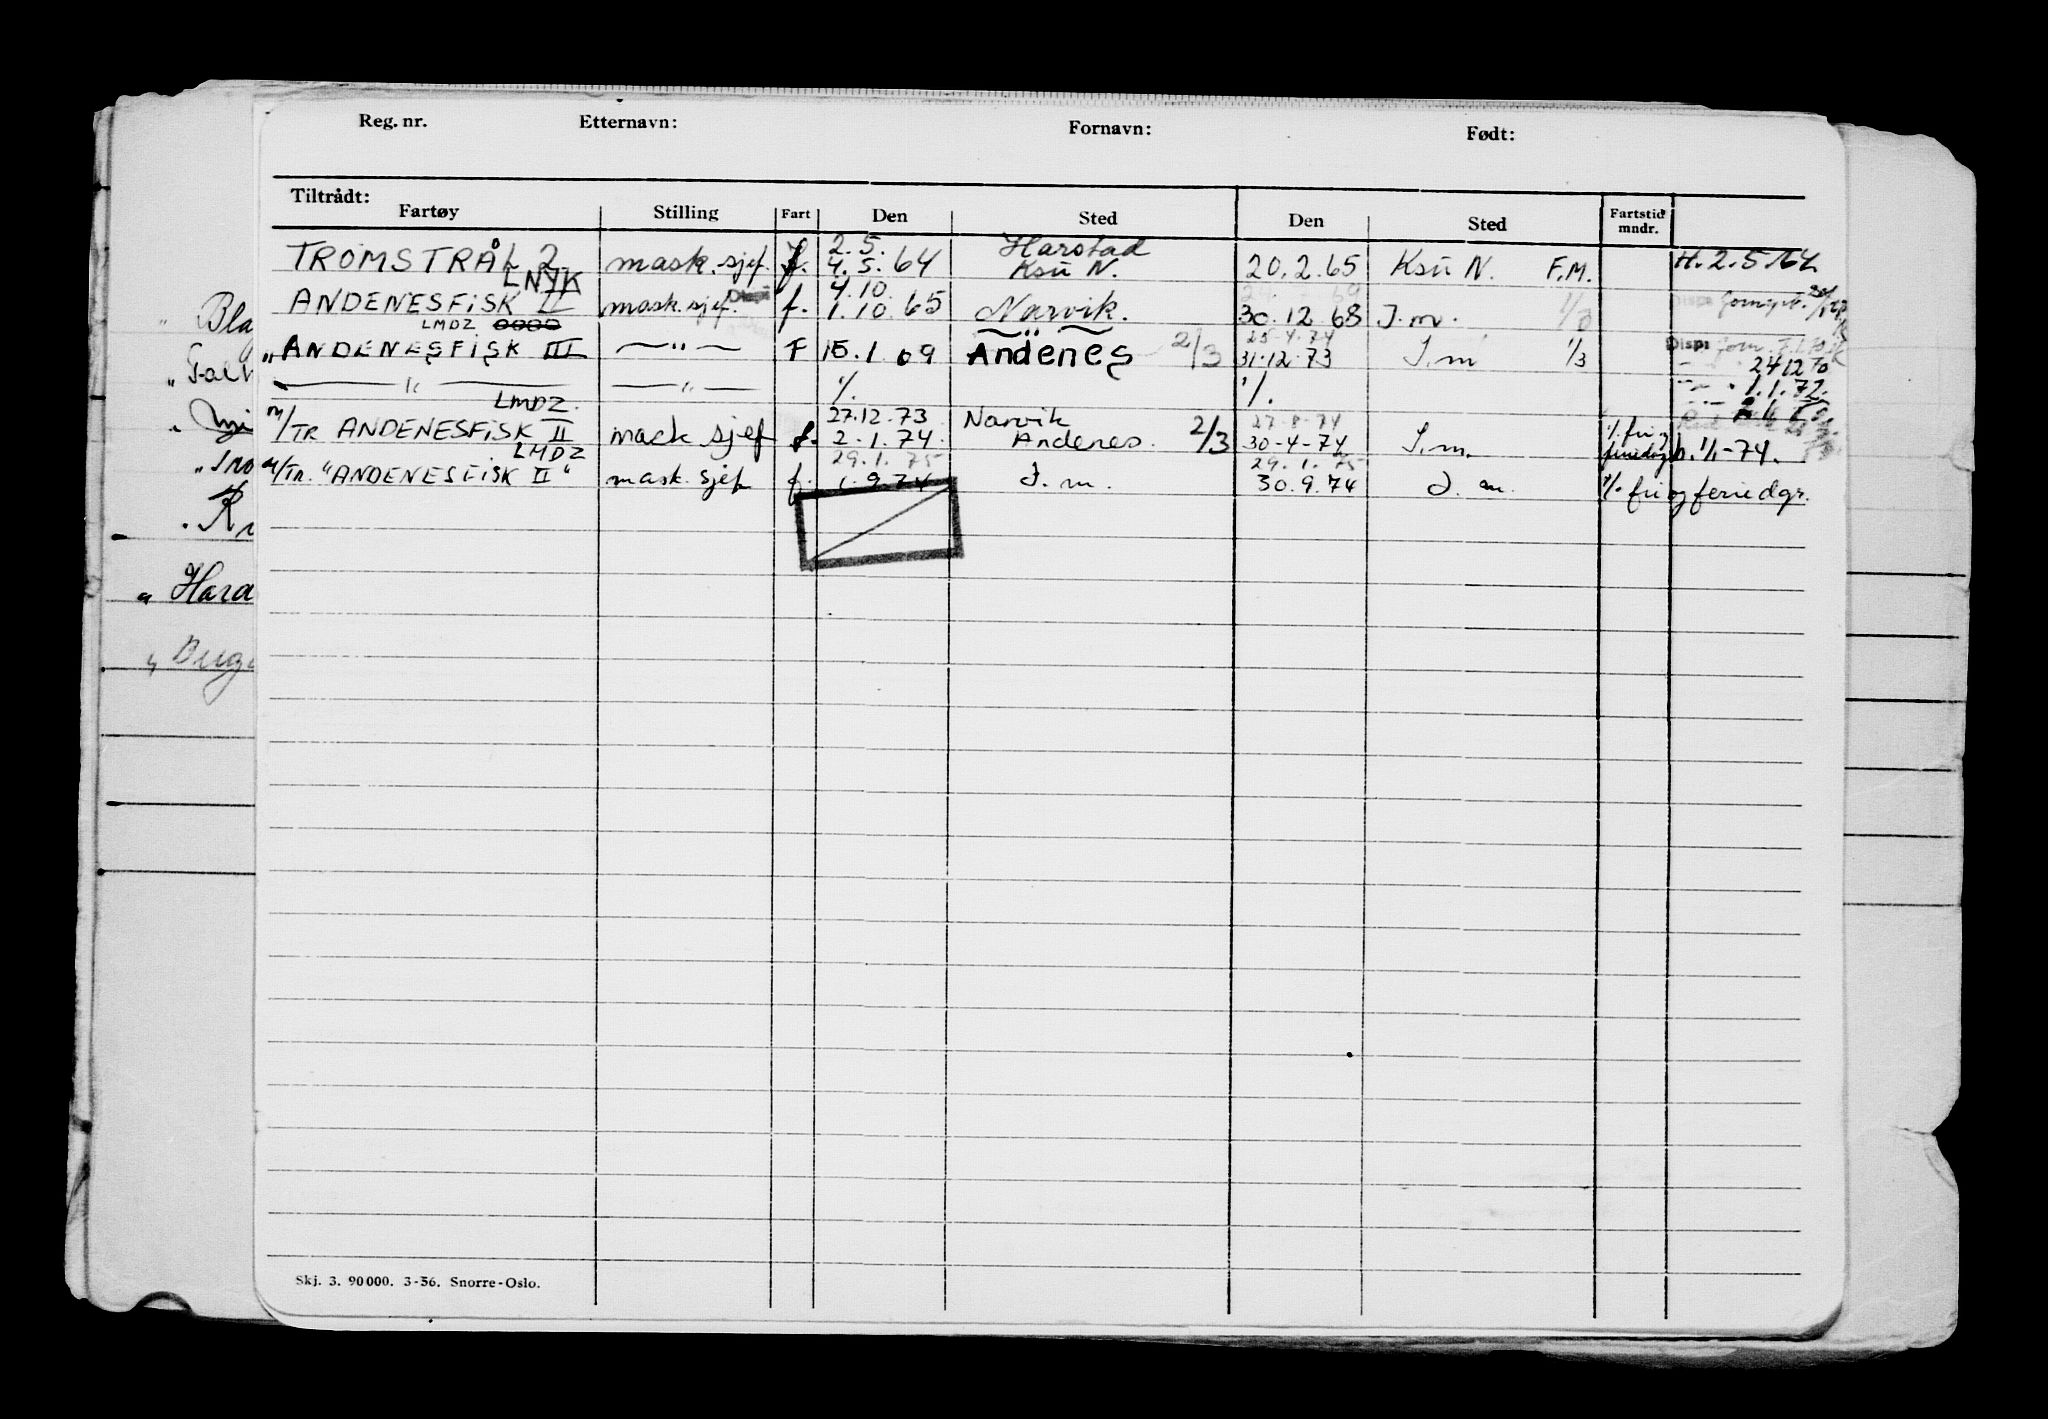 Reg. nr. Etternavn: Fornavn: Født:
Tiltrådt:
Fartøy Stilling Fart Den Sted Den Sted Fartstid mndr.
2.5. Harstad
TROMSTRÅL 2 mask. sjef. f. 4.5.64 Ksu N. 20.2.65 Ksu N. F.M. H. 2.5.64
LNYK 4.10
ANDENESFISK II mask. sjef. f. 1.10.65 Narvik. 30.12.68 J.m. 1/3
LMDZ 25.4.74
„ANDENESFISK III —„— F 15.1.69 Andenes 2/3 31.12.73 J.m 1/3 Disp
—„— —„— ./. ./. 2412 70
1.1.72.
LMDZ. 27.12.73 Narvik 27.8.74
M/TR ANDENESFISK II mask sjef f. 2.1.74. Andenes. 2/3 30-4-74 J.m. ./. fri og feriedg b. 1/1-74.
LMDZ 29.1.75 29.1.75
M/TR. "ANDENESFISK II" mask. sjef f. 1.9.74 J.m. 30.9.74 J.m. ./. fri og feriedgr.
„ Bla
„ Hara
Skj. 3. 90000. 3-56. Snorre-Oslo.